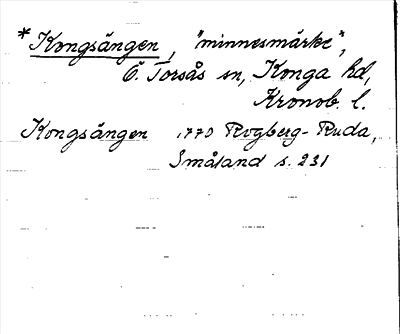 *Kongsängen, "minnesmärke",
Ö. Torsås sn, Konga hd,
Kronob. l.
Kongsängen 1770 Rogberg-Ruda,
Småland s. 231